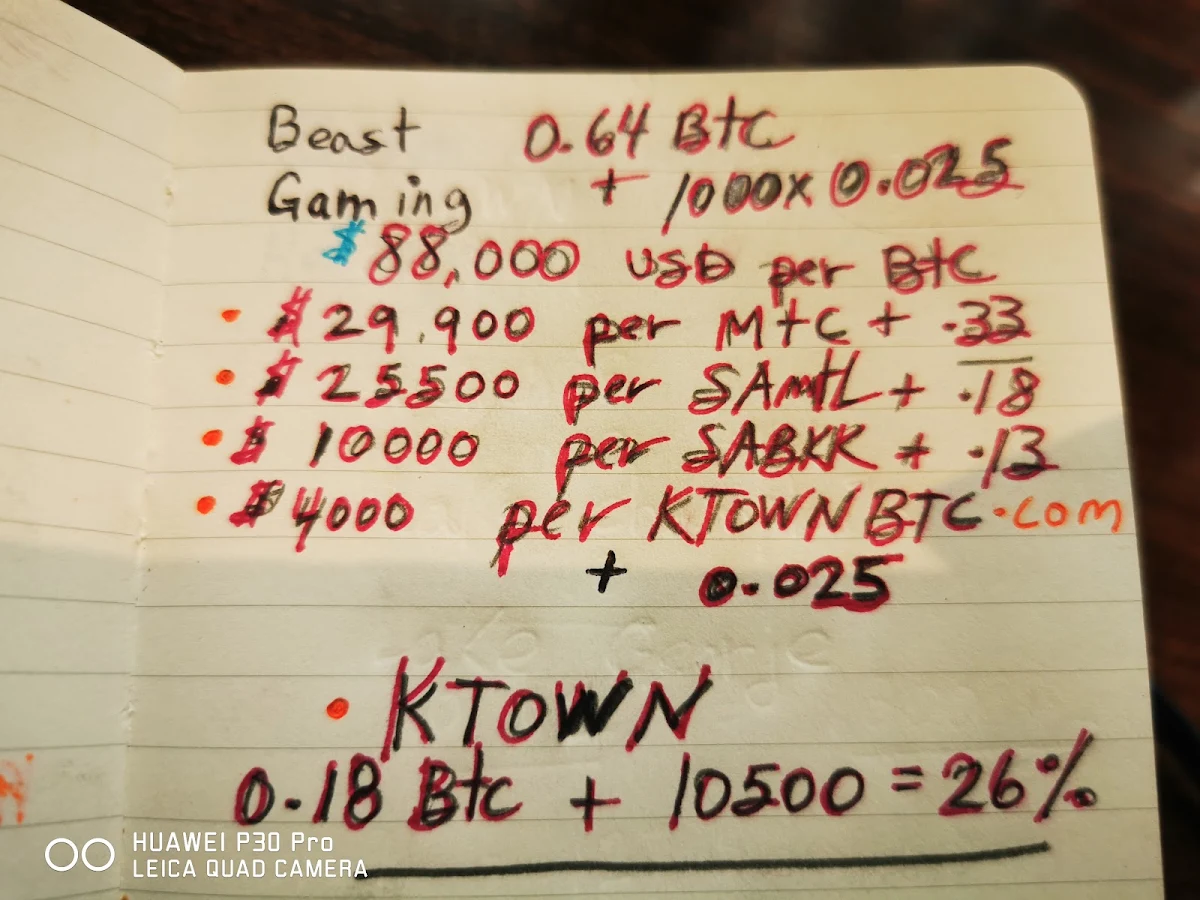 Beast 0.64 Btc
Gaming + 1000x 0.025
$88,000 USD per Btc
• $29.900 per Mtc + .33
• $ 25500 per SAmtL + .18
• $ 10000 per SABKK + .13
• $4000 per KTOWNBTC.com
+ 0.025
• KTOWN
0.18 Btc + 10500 = 26%
HUAWEI P30 Pro
LEICA QUAD CAMERA